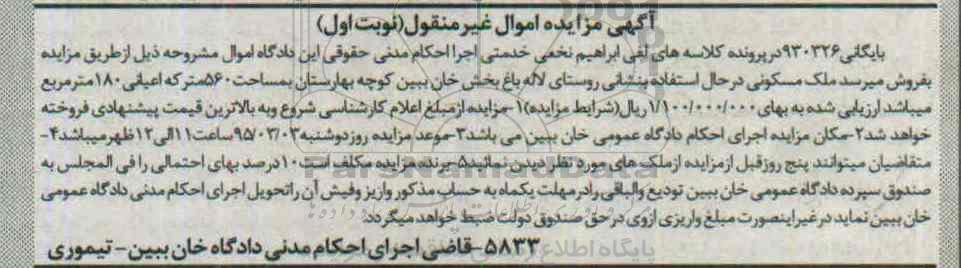 آگهی مزایده اموال غیر منقول (نوبت اول)
بایگانی ۹۳۰۳۲۶ در پرونده کلاسه های لفی ابراهیم نخعی خدمتی اجرا احکام مدنی حقوقی این دادگاه اموال مشروحه ذیل از طریق مزایده
بفروش میرسد ملک مسکونی در حال استفاده بنشانی روستای لاله باغ بخش خان ببین کوچه بهارستان بمساحت ۵۶۰ متر که اعیانی ۱۸۰ متر مربع
میباشد ارزیابی شده به بهای ۱/۱۰۰/۰۰۰/۰۰۰ ریال (شرایط مزایده) ۱-مزایده از مبلغ اعلام کارشناسی شروع و به بالاترین قیمت پیشنهادی فروخته
خواهد شد ۲-مکان مزایده اجرای احکام دادگاه عمومی خان ببین می باشد ۳-موعد مزایده روز دوشنبه ۹۵/۰۳/۰۳ ساعت ۱۱ الی ۱۲ ظهر میباشد ۴-
متقاضیان میتوانند پنج روز قبل از مزایده از ملک های مورد نظر دیدن نمائید ۵-برنده مزایده مکلف است ۱۰ درصد بهای احتمالی را فی المجلس به
صندوق سپرده دادگاه عمومی خان ببین تودیع والباقی را در مهلت یکماه به حساب مذکور واریز و فیش آن را تحویل اجرای احکام مدنی دادگاه عمومی
خان ببین نماید در غیر اینصورت مبلغ واریزی از وی در حق صندوق دولت ضبط خواهد میگردد
۵۸۳۳-قاضی اجرای احکام مدنی دادگاه خان ببین - تیموری
ParsNamadData